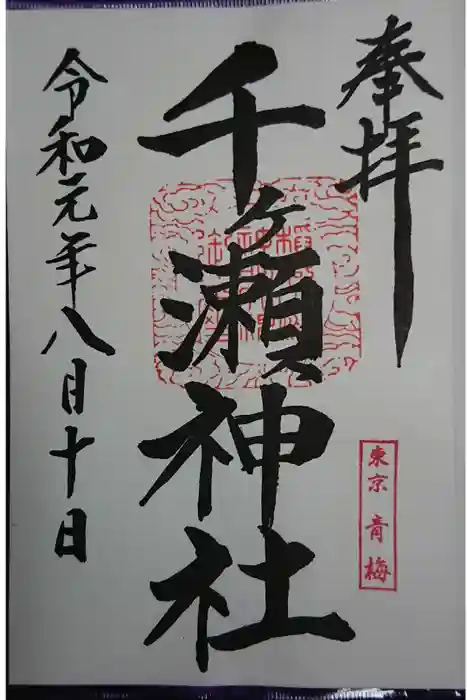 奉拝
東京 青梅
千ヶ瀬神社
令和元年八月十日